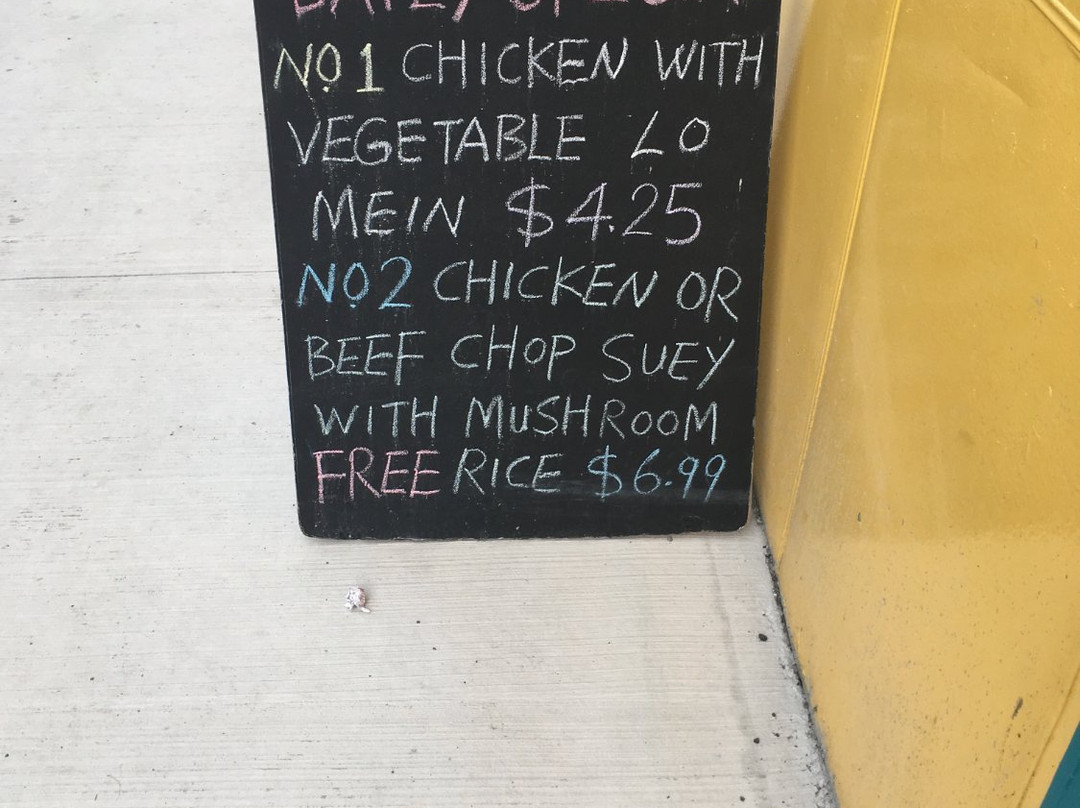 NO1 CHICKEN WITH
VEGETABLE LO
MEIN $4.25
NO2 CHICKEN OR
BEEF CHOP SUEY
WITH MUSHROOM
FREE RICE $6.99